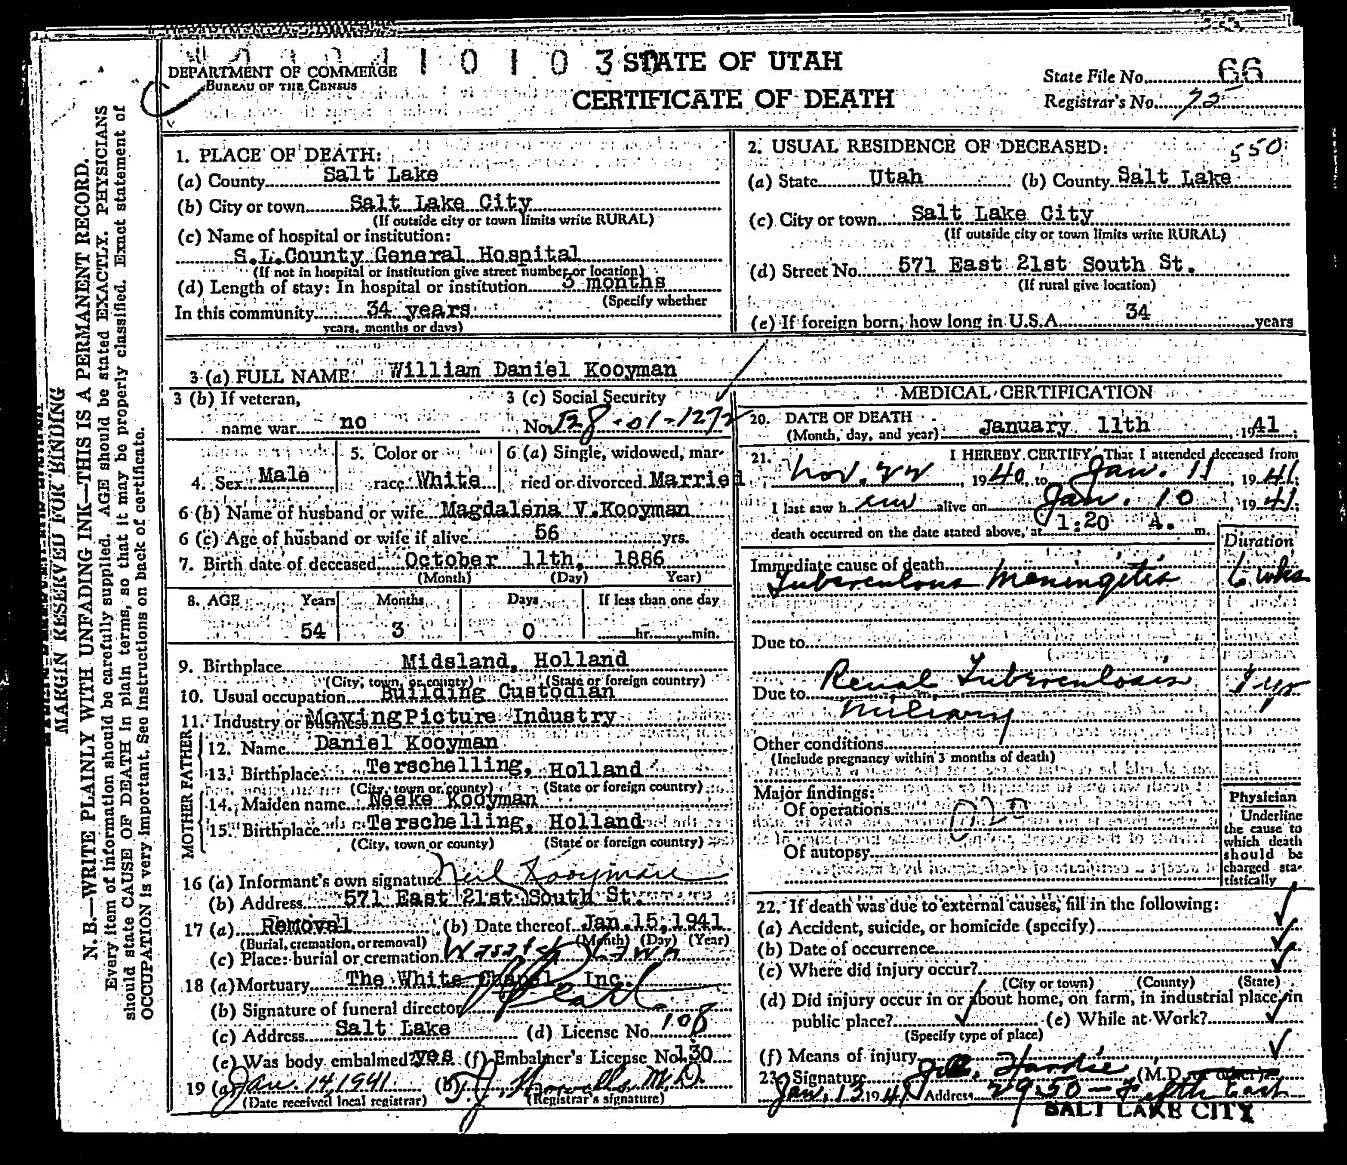 STATE OF UTAH
DEPARTMENT OF COMMERCE
BUREAU OF THE CENSUS
CERTIFICATE OF DEATH
State File No. 66
Registrar's No. 72
MARGIN RESERVED FOR BINDING
N. B.—WRITE PLAINLY WITH UNFADING INK—THIS IS A PERMANENT RECORD.
Every item of information should be carefully supplied. AGE should be stated EXACTLY. PHYSICIANS
should state CAUSE OF DEATH in plain terms, so that it may be properly classified. Exact statement of
OCCUPATION is very important. See instructions on back of certificate.
1. PLACE OF DEATH:
(a) County Salt Lake
(b) City or town Salt Lake City
(If outside city or town limits write RURAL)
(c) Name of hospital or institution:
S.L.County General Hospital
(If not in hospital or institution give street number or location)
(d) Length of stay: In hospital or institution 3 months
(Specify whether
In this community 34 years
years, months or days)
2. USUAL RESIDENCE OF DECEASED: 550
(a) State Utah (b) County Salt Lake
(c) City or town Salt Lake City
(If outside city or town limits write RURAL)
(d) Street No. 571 East 21st South St.
(If rural give location)
(e) If foreign born, how long in U.S.A. 34 years
3 (a) FULL NAME William Daniel Kooyman
3 (b) If veteran, name war no
3 (c) Social Security No. 528-01-1272
4. Sex Male
5. Color or race White
6 (a) Single, widowed, married or divorced Married
6 (b) Name of husband or wife Magdalena V.Kooyman
6 (c) Age of husband or wife if alive 56 yrs.
7. Birth date of deceased October 11th, 1886
(Month) (Day) Year)
8. AGE Years Months Days If less than one day
54 3 0 hr. min.
9. Birthplace Midsland, Holland
(City, town, or county) (State or foreign country)
10. Usual occupation Building Custodian
11. Industry or Business Moving Picture Industry
FATHER
12. Name Daniel Kooyman
13. Birthplace Terschelling, Holland
(City, town or county) (State or foreign country)
MOTHER
14. Maiden name Neeke Kooyman
15. Birthplace Terschelling, Holland
(City, town or county) (State or foreign country)
16 (a) Informant's own signature Neil Kooyman
(b) Address 571 East 21st South St.
17 (a) Removal (b) Date thereof Jan.15,1941
(Burial, cremation, or removal) (Month) (Day) (Year)
(c) Place: burial or cremation Wasatch Lawn
18 (a) Mortuary The White Chapel Inc.
(b) Signature of funeral director
(c) Address Salt Lake (d) License No. 108
(e) Was body embalmed? yes (f) Embalmer's License No. 130
19 (a) Jan. 14, 1941 (b) T.J. Howells M.D.
(Date received local registrar) (Registrar's signature)
MEDICAL CERTIFICATION
20. DATE OF DEATH
(Month, day, and year) January 11th, 1941
21. I HEREBY CERTIFY, That I attended deceased from
Nov. 22, 1940, to Jan. 11, 1941
I last saw him alive on Jan. 10, 1941
death occurred on the date stated above, at 1:20 A. m.
Duration
Immediate cause of death
Tuberculous Meningitis 6 wks
Due to
Due to Renal Tuberculosis 1 yr
miliary
Other conditions
(Include pregnancy within 3 months of death)
Major findings:
Of operations
Of autopsy
Physician
Underline
the cause to
which death
should be
charged sta-
tistically
22. If death was due to external causes, fill in the following:
(a) Accident, suicide, or homicide (specify)
(b) Date of occurrence
(c) Where did injury occur?
(City or town) (County) (State)
(d) Did injury occur in or about home, on farm, in industrial place, in
public place? (e) While at Work?
(Specify type of place)
(f) Means of injury
23. Signature Hardie (M.D. or other)
Jan. 13 1941 Address 2950 - Fifth East
SALT LAKE CITY